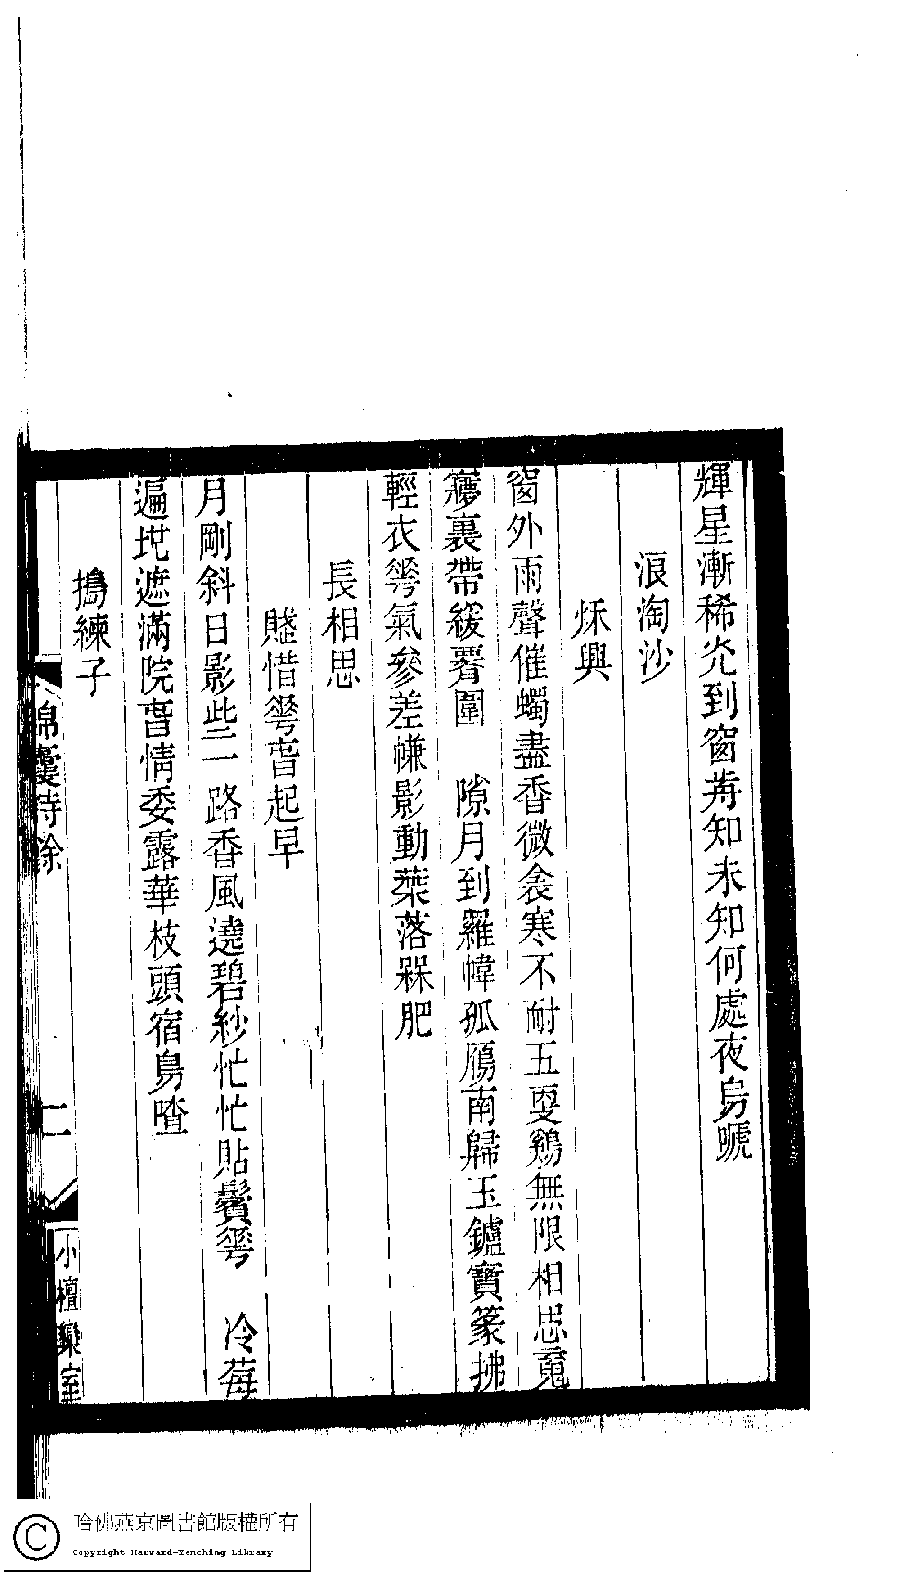 輝星漸稀灮到窗歬知未知何處夜烏號
浪淘沙
秌興
窗外雨聲催蠋盡香微衾寒不耐五更鷄無限相思䰟
㝱裏帶緩圍　隙月到羅幃孤鴈南歸玉鑪寶篆拂
輕衣𠌶氣參差㡘影動葉落槑肥
長相思
賤惜𠌶旾起早
月剛斜日影些二路香風遶碧紗忙忙貼鬢𠌶　冷莓
遍地遮滿院旾情委露華枝頭宿鳥喳
搗練子
錦囊詩餘
二
小檀欒室
哈佛燕京圖書館版權所有
Copyright Harvard-Yenching Library